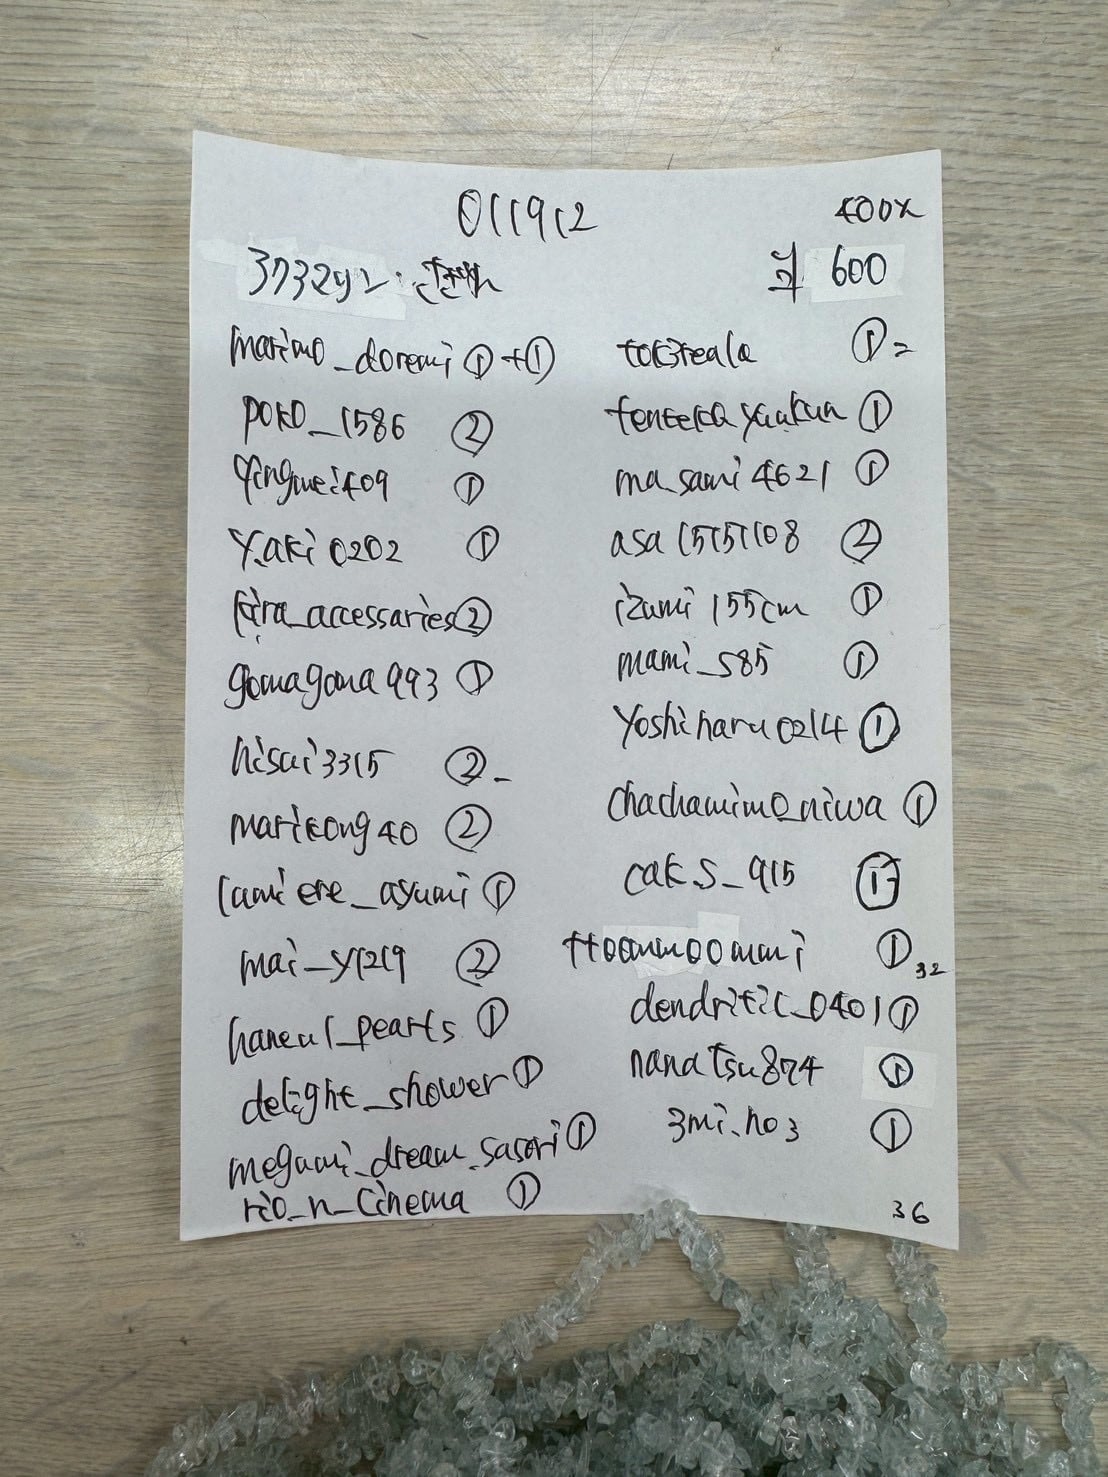 011912
400x
600
marimo_doremi ①+①
poko_1586 ②
qingmei409 ①
Y.aki 0202 ①
kira_accessaries ②
gomagoma993 ①
hisai3315 ②-
maricong40 ②
lumiere_ayumi ①
mai_y1219 ②
haneul_pearls ①
delight_shower ①
megumi_dream_sasori ①
rio_n_cinema ①
①=
tentekoyuukun ①
ma.sami4621 ①
asa15151108 ②
izumi155cm ①
mami_s85 ①
Yoshiharu0214 ①
chachamimo_niwa ①
cak.s_915 ①
ttoommoommi ①
32
dendritic_0401 ①
nanatsu874 ①
3mi.no3 ①
36